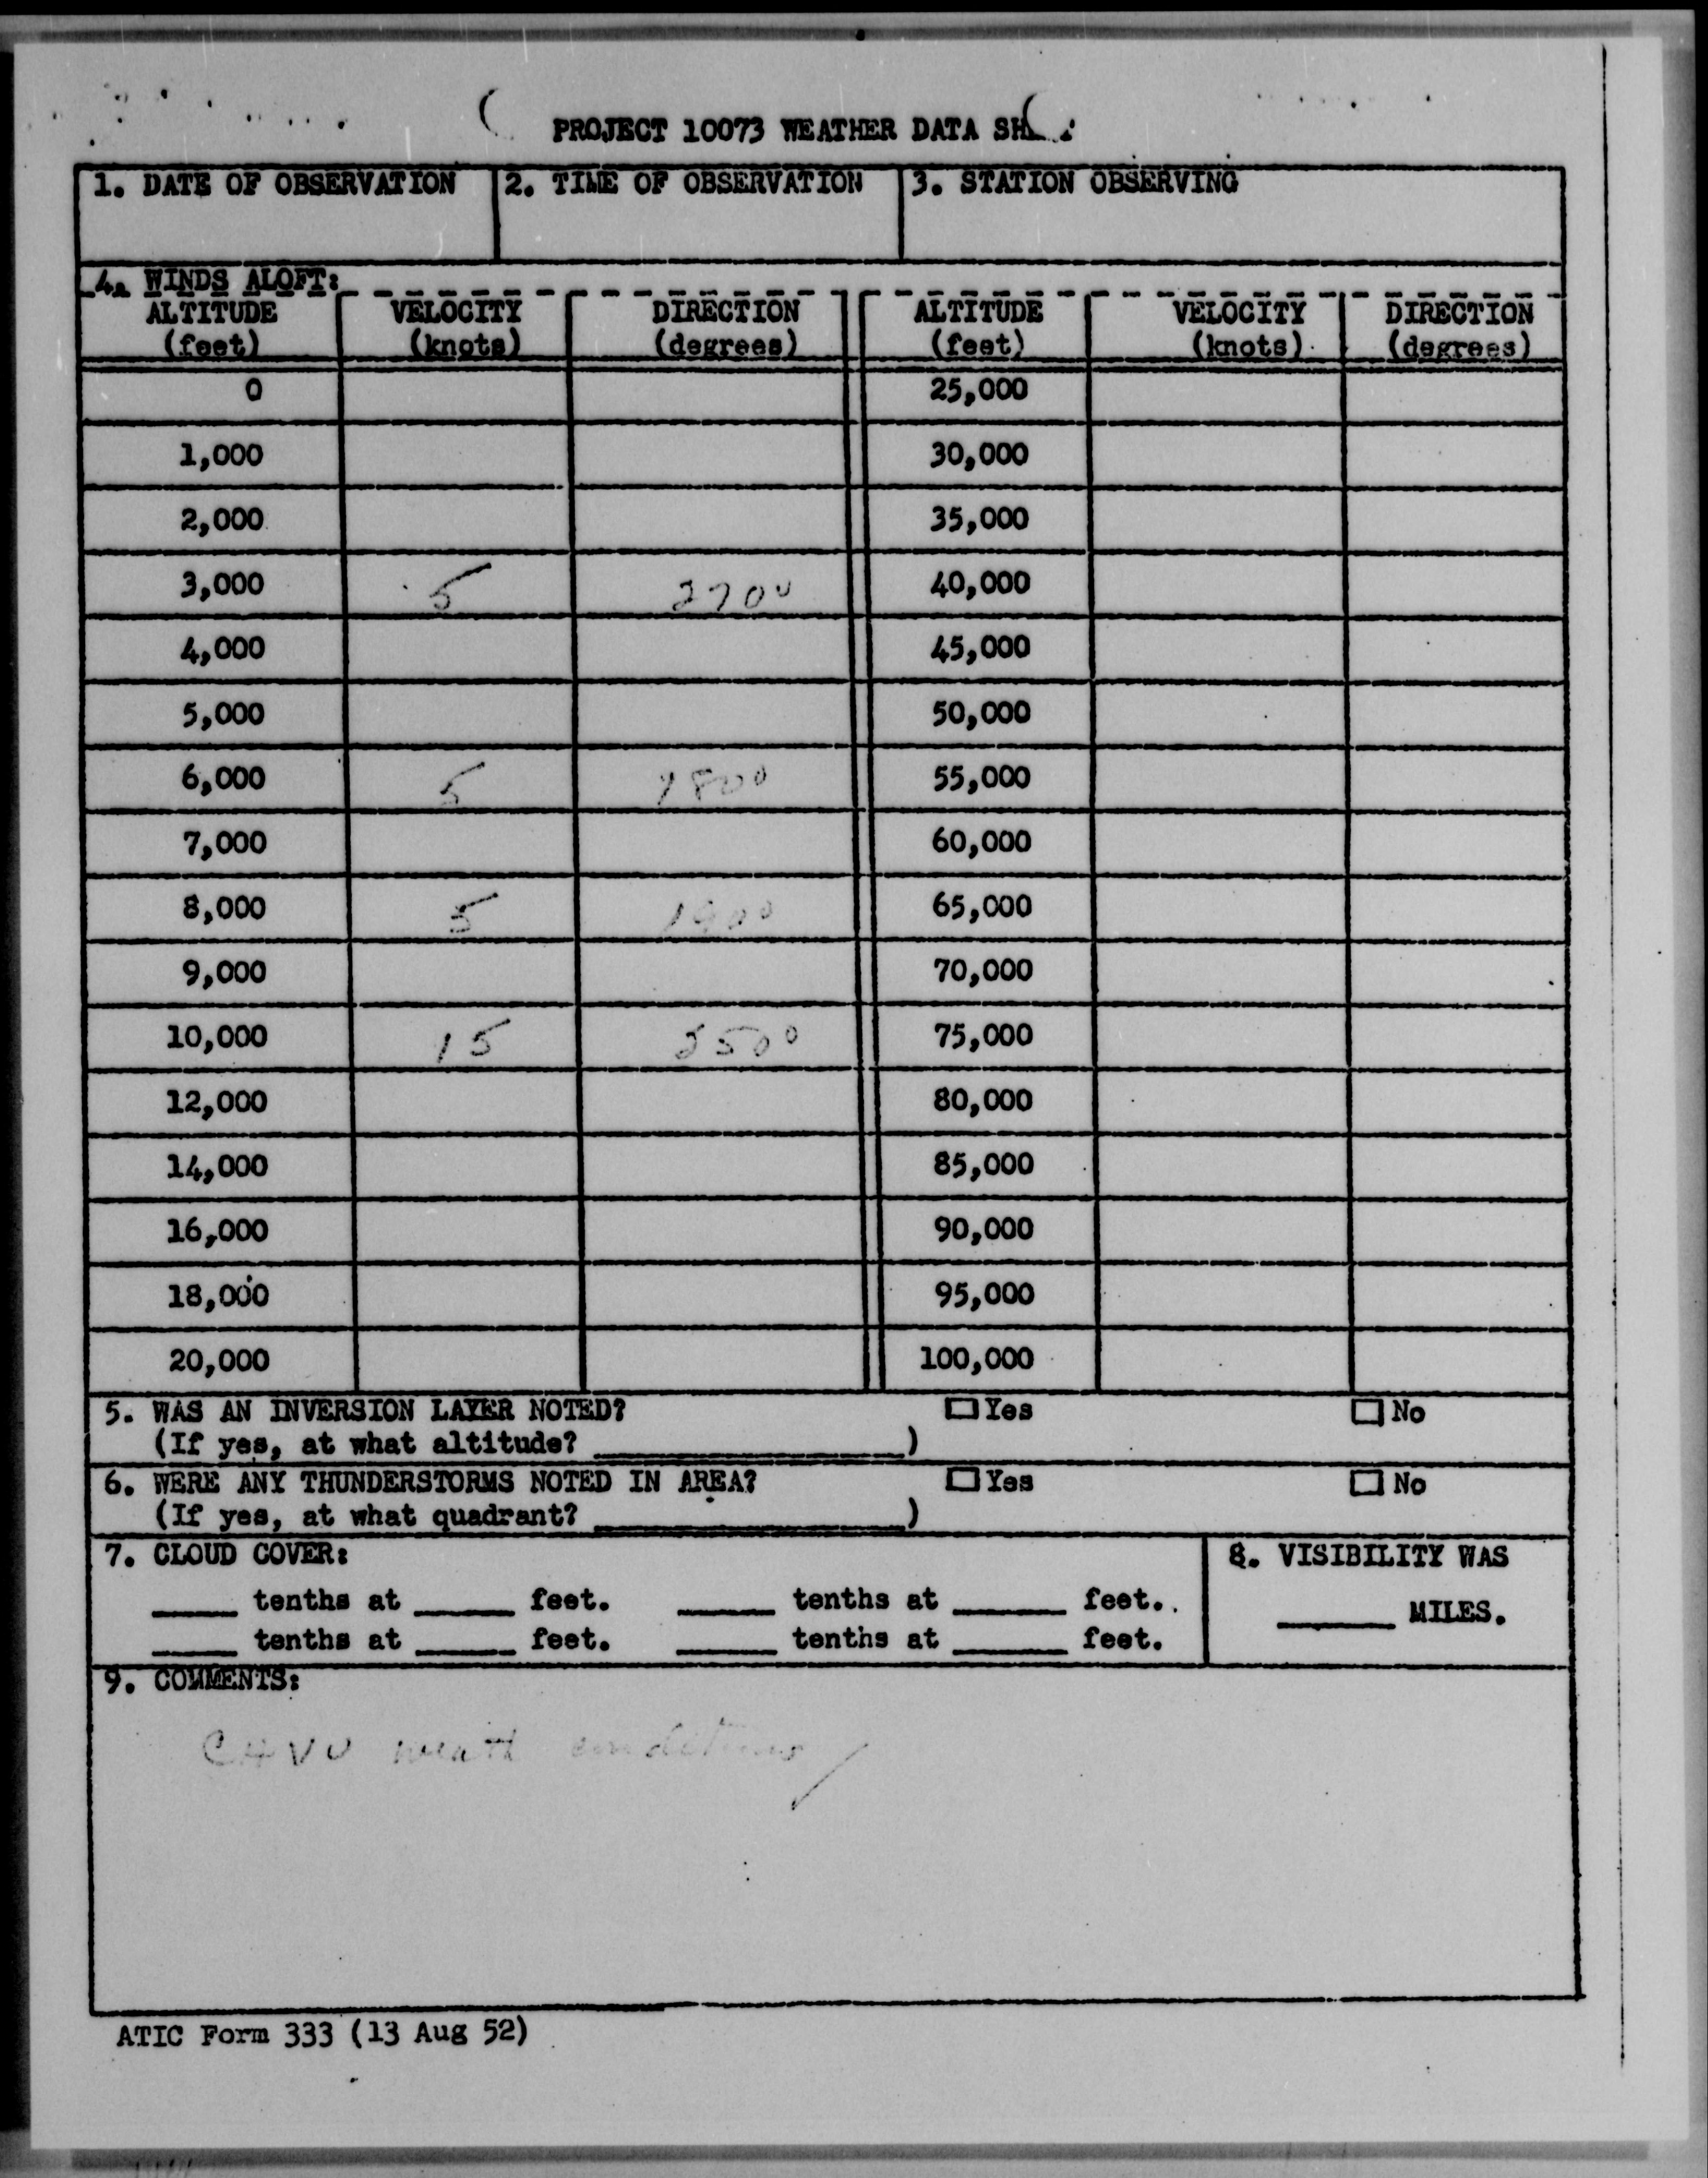 PROJECT 10073 WEATHER DATA
1. DATE OF OBSERVATION 2. TIME OF OBSERVATION 3. STATION OBSERVING
4. WINDS ALOFT:
ALTITUDE VELOCITY DIRECTION ALTITUDE VELOCITY DIRECTION
(feet) (knots) (degrees) (feet) (knots) (degrees)
0 25,000
1,000 30,000
2,000 35,000
3,000 5 270° 40,000
4,000 45,000
5,000 50,000
6,000 5 180° 55,000
7,000 60,000
8,000 5 65,000
9,000 70,000
10,000 15 75,000
12,000 80,000
14,000 85,000
16,000 90,000
18,000 95,000
20,000 100,000
5. WAS AN INVERSION LAYER NOTED? Yes No
(If yes, at what altitude? )
6. WERE ANY THUNDERSTORMS NOTED IN AREA? Yes No
(If yes, at what quadrant? )
7. CLOUD COVER: 8. VISIBILITY WAS
tenths at feet. tenths at feet. MILES.
tenths at feet. tenths at feet.
9. COMMENTS:
CAVU conditions
ATIC Form 333 (13 Aug 52)